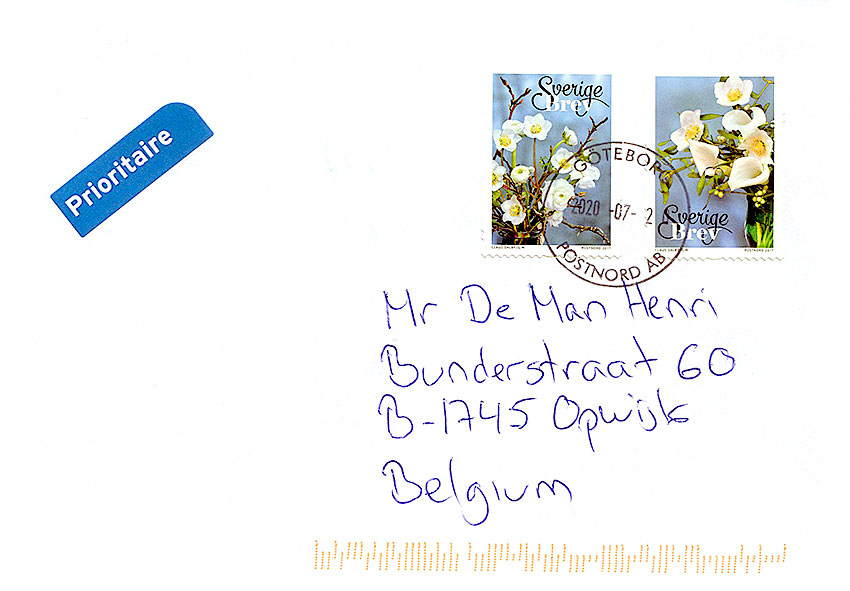 Prioritaire
Sverige
Brev
CLAUS DALBY/LIM POSTNORD 2017
Sverige
Brev
CLAUS DALBY/LIM POSTNORD 2017
GÖTEBORG
2020 -07- 2
POSTNORD AB
Mr De Man Henri
Bunderstraat 60
B-1745 Opwijk
Belgium